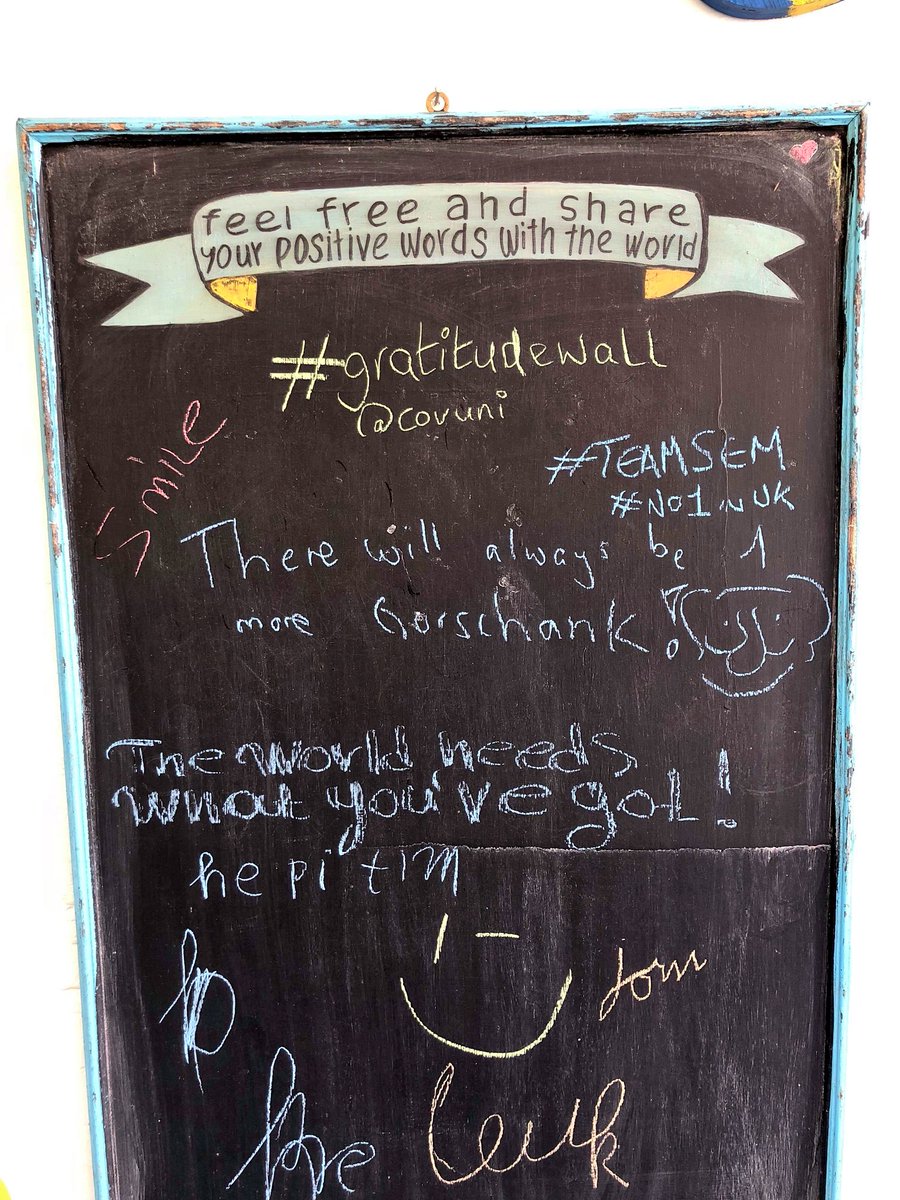 feel free and share
your positive words with the world
#gratitudewall
@covuni
Smile
#TEAMSEM
#No1INUK
There will always be 1
more Gorschank!
The world needs
what you've got!
he pi tim